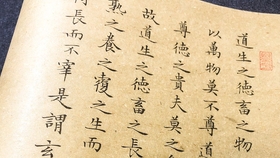 道生之德畜之物
以萬物莫不尊道
尊德之貴夫莫之
故道生之德畜之長
熟之養之覆之生而
恃長而不宰是謂玄